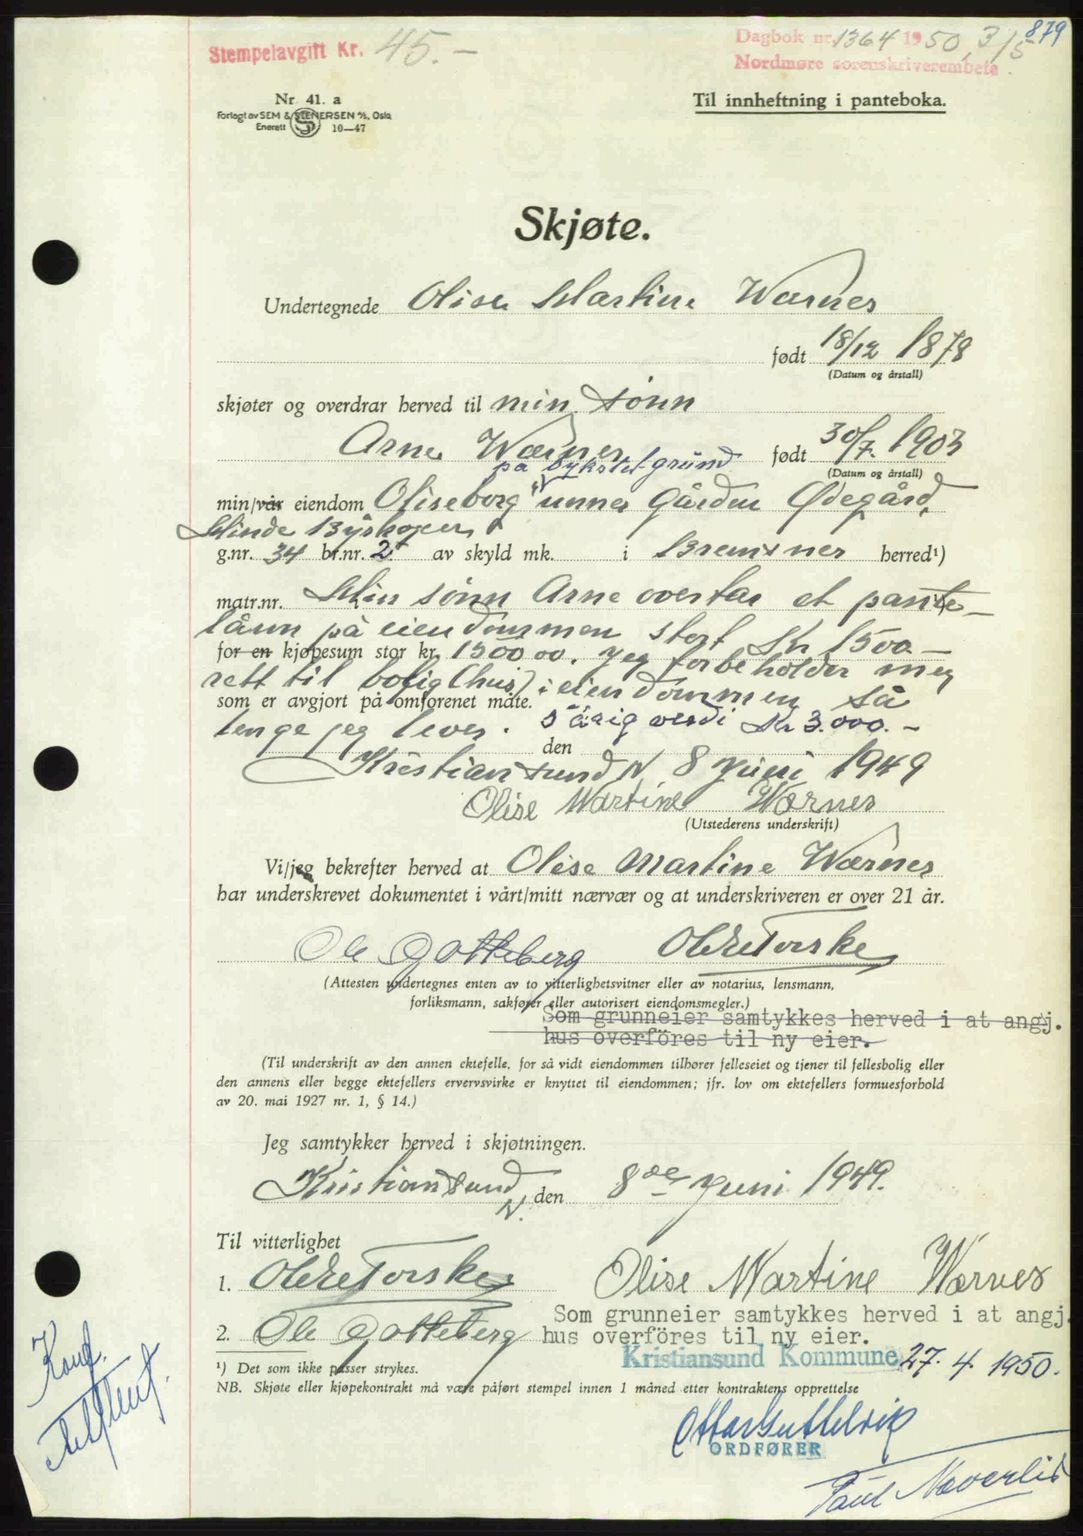 879
Stempelavgift Kr. 45.-
Dagbok nr. 1364 1950, 3/5
Nordmøre sorenskriverembete.
Nr. 41. a
Forlagt av SEM & STENERSEN A/S, Oslo
Enerett S 10—47
Til innheftning i panteboka.
Skjøte.
Undertegnede Olise Martine Wærnes
født 18/12 1878
(Datum og årstall)
skjøter og overdrar herved til min sønn
Arne Wærnes født 30/7. 1903
(Datum og årstall)
på bykslet grunn
min/vår eiendom Oliseborg unner Gården Ødegård,
g.nr. 34 br.nr. 2 av skyld mk. i Bremsnes herred¹)
matr.nr. Min sønn Arne overtar et pante-
lånn på eiendommen stort Kr 1500-
for en kjøpesum stor kr. 1500 00. Jeg forbeholder meg
rett til bolig (hus) i eiendommen så
som er avgjort på omforenet måte.
lenge jeg lever. 5 årig verdi Kr 3.000.-
den
Kristiansund N 8 Juni 1949
Olise Martine Wærnes
(Utstederens underskrift)
Vi/jeg bekrefter herved at Olise Martine Wærnes
har underskrevet dokumentet i vårt/mitt nærvær og at underskriveren er over 21 år.
Ole Gotteberg
(Attesten undertegnes enten av to vitterlighetsvitner eller av notarius, lensmann,
forliksmann, sakfører eller autorisert eiendomsmegler.)
Som grunneier samtykkes herved i at angj.
hus overföres til ny eier.
(Til underskrift av den annen ektefelle, for så vidt eiendommen tilhører felleseiet og tjener til fellesbolig eller
den annens eller begge ektefellers ervervsvirke er knyttet til eiendommen; jfr. lov om ektefellers formuesforhold
av 20. mai 1927 nr. 1, § 14.)
Jeg samtykker herved i skjøtningen.
Kristiansund N. den 8de Juni 1949.
Til vitterlighet
1. Olise Martine Wærnes
2. Ole Gotteberg
Som grunneier samtykkes herved i at angj.
hus overföres til ny eier.
Kristiansund Kommune, 27.4.1950.
¹) Det som ikke passer strykes.
NB. Skjøte eller kjøpekontrakt må være påført stempel innen 1 måned etter kontraktens opprettelse
ORDFØRER